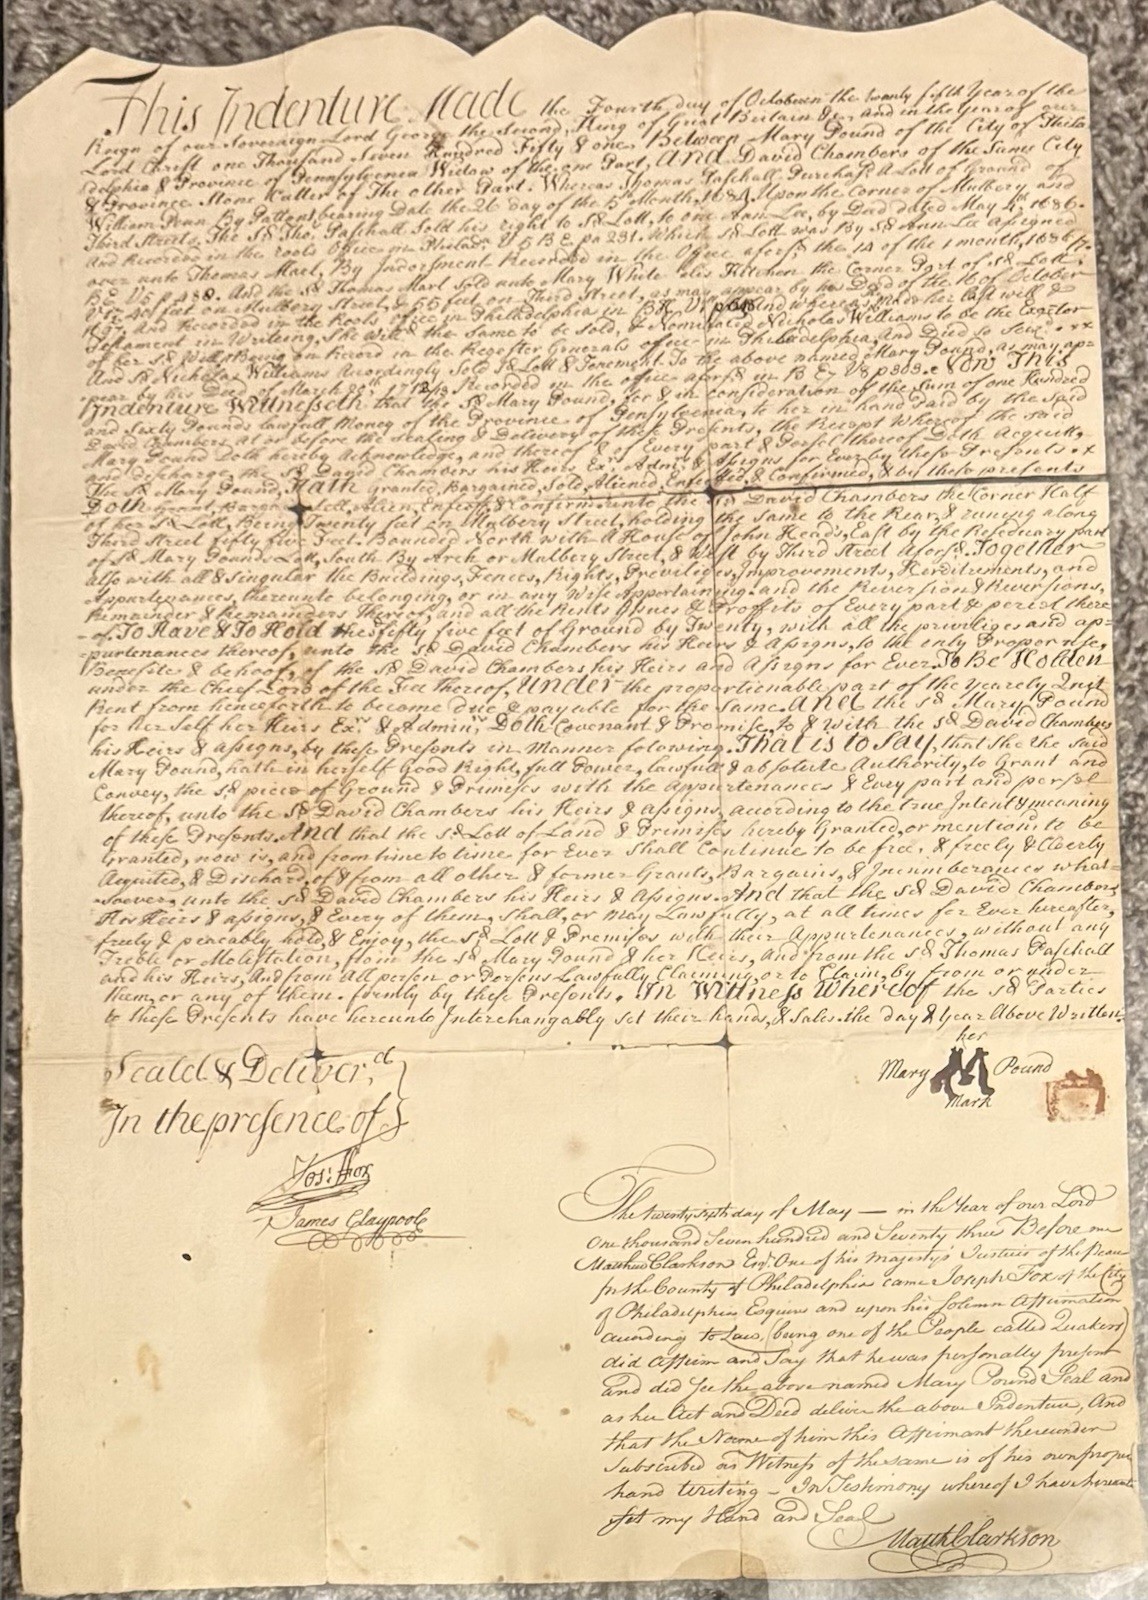 This Indenture Made the Fourth day of October in the twenty fifth Year of the
Reign of our Sovereign Lord George the Second, King of Great Britain &c. and in the Year of our
Lord Christ one Thousand Seven Hundred Fifty & one. Between Mary Pound of the City of Phila
delphia & Province of Pennsylvania Widow of the one Part, And David Chambers of the Same City
& Province Stone Cutter of The other Part. Whereas Thomas Paschall Purchas'd A Lott of Ground of
William Penn By Pattent, bearing Date the 26 day of the 5th Month, 1684, Upon the Corner of Mulbery and
Third Streets, The Sd. Tho. Paschall Sold his right to Sd. Lott, to one Ann Lee, by Deed dated May 4th 1686.
And Recorded in the rools Office in Philada. V 5 B E pa 231. Which sd Lott was By Sd. Ann Lee Asigned
over unto Thomas Marl, By Indorsment Recorded in the Office afors'd the 14 of the 1 month, 1686/7.
B E V5 P 488. And the Sd Thomas Marl Sold unto Mary White alis Kitchen the Corner Part of sd. Lott,
Viz. 40 feet on Mulbery Street, & 55 feet on Third Street, as may appear by his Deed of the 16 of October
1697, And Recorded in the Rools office in Philadelphia in and whereas Made her last will &
Testament in Writeing, She will'd the Same to be Sold, & Nominated Nicholas Williams to be the Exector
of her Sd Will, Being on Record in the Regester Generals office in Philadelphia, And Died so
And Sd Nicholas Williams Accordingly Sold Sd Lott & Tenement To the above named Mary Pound, as may ap-
pear by his Deed of March 20th Recorded in the office afors'd in B E V8 p 303. Now This
Indenture Witnesseth that the Sd Mary Pound, for & in consideration of the Sum of one Hundred
and Sixty Pounds lawfull Money of the Province of Pensylvenia, to her in hand Paid by the Said
David Chambers at or before the Sealing & Delivery of these Presents, the Receipt Whereof the said
Mary Pound Doth hereby Acknowledge, and thereof & of Every part & Persel thereof Doth Acquitt,
and discharge the sd David Chambers his Heirs Exr. Adm. & Asigns for Ever by these Presents
The Sd Mary Pound, Hath granted, Bargained, Sold, Aliened, Enfeofed & Confirmed, & by these presents
Doth Grant, Bargain Sell, Alien, Enfeoff & Confirm unto the Sd David Chambers the Corner Half
of her Sd Lott, Being Twenty feet on Mulbery Street, holding the Same to the Rear, & runing along
Third Street fifty five Feet. Bounded North with A House of John Head's, East by the Reseduary part
of Sd Mary Pounds Lott, South By Arch or Mulbery Street, & West by Third Street Afors'd. Together
also with all & Singular the Buildings, Fences, Rights, Previliges, Improvements, Herditrements, and
Appurtenances, thereunto belonging, or in any Wise Appertaining. and the Reversion & Reversions,
Remainder & Remainders Thereof, and all the Rents Issues & Proffits of Every part & persel there
of. To Have & To Hold the sd fifty five feet of Ground by Twenty, with all the priviliges and ap-
purtenances thereof, unto the Sd David Chambers his Heirs & Asigns, to the only Proper use,
Benefite & behoof, of the Sd David Chambers, his Heirs and Assigns for Ever. To Be Holden
under the Chief Lord of the Fee thereof, Under the proportionable part of the Yearely Quit
Rent from henceforth to become due & payable for the Same. And the sd Mary Pound
for her Self her Heirs Exr. & Admin.rs Doth Covenant & Promise, to & with the sd David Chambers
his Heirs & Asigns, by these Presents in Manner folowing. That is to Say, that She the Said
Mary Pound, hath in herself Good Right, full Power, lawfull & absolute Authority, to Grant and
Convey, the sd piece of Ground & Primises with the appurtenances & Evry part and persel
thereof, unto the Sd David Chambers his Heirs & asigns, acording to the true Intent & meaning
of these Presents. And that the sd Lott of Land & Premises hereby Granted, or mentiond to be
Granted, now is, and from time to time for Ever Shall Continue to be free, & freely & Cleerly
Acquited, & Dischard, of & from all other & former Grants, Bargains, & Incumberances what-
soever, unto the sd David Chambers his Heirs & Asigns. And that the sd David Chambers
His Heirs & asigns, & Every of them, Shall, or may Lawfully, at all times for Ever hereafter,
freely & peacably hold, & Enjoy, the sd Lott & Premises with their Appurtenances, without any
Treble or Molestation, from the sd Mary Pound & her Heirs, and from the sd Thomas Paschall
and his Heirs, And from All person or Persons Lawfully Claiming, or to Claim, by from or under
them, or any of them. firmly by these Presents. In Witness Whereof the sd Parties
to these Presents have hereunto Interchangably set their hands, & Sales. the day & Year Above Written
her
Mary M Pound
mark
Seald & Deliver,d
In the presence of
Jos: Fox
James Claypoole
The twenty sixth day of May — in the Year of our Lord
One thousand Seven hundred and Seventy three Before me
Matthew Clarkson Esqr. One of his majesty's Justices of the Peace
for the County of Philadelphia came Joseph Fox of the City
of Philadelphia Esquire and upon his Solemn Affirmation
according to Law, (being one of the People called Quakers)
did Affirm and Say that he was personally present
and did See the above named Mary Pound Seal and
as her Act and Deed deliver the above Indenture, And
that the Name of him this Affirmant thereunder
Subscribed as Witness of the same is of his own proper
hand writing — In Testimony whereof I have hereunto
set my Hand and Seal
Matth Clarkson